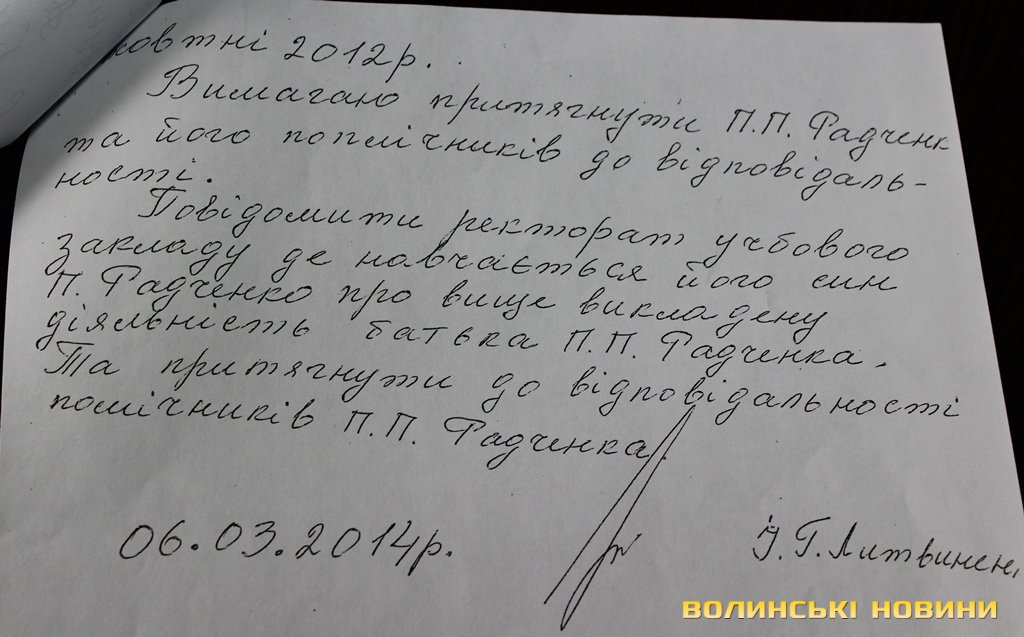 жовтні 2012р.
Вимагаю притягнути П.П. Радченк
та його попмічників до відповідаль-
ності.
Повідомити ректорат учбового
закладу де навчається його син
П. Радченко про вище викладену
діяльність батька П.П. Радченка.
Та притягнути до відповідальності
помічників П.П. Радченка
06.03.2014р.
І.Г. Литвинен
ВОЛИНСЬКІ НОВИНИ